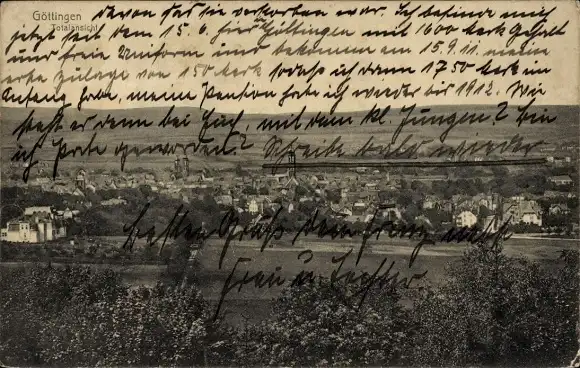 Göttingen
Totalansicht
davon daß sie verdorben war. Ich befinde mich
jetzt seit dem 15. 6. hier Göttingen mit 1600 Mark Gehalt
und freie Uniform und bekomme am 15.9.11. mein
erste Zulage von 150 Mark sodaß ich dann 1750 Mark im
Anfang habe, meine Pension habe ich wieder bis 1912. Wie
steht es denn bei Euch mit dem kl. Jungen? Bin
ich Pate geworden? Schreibe bald wieder
besten Gruß Dein Franz nebst
Frau u. Tochter.